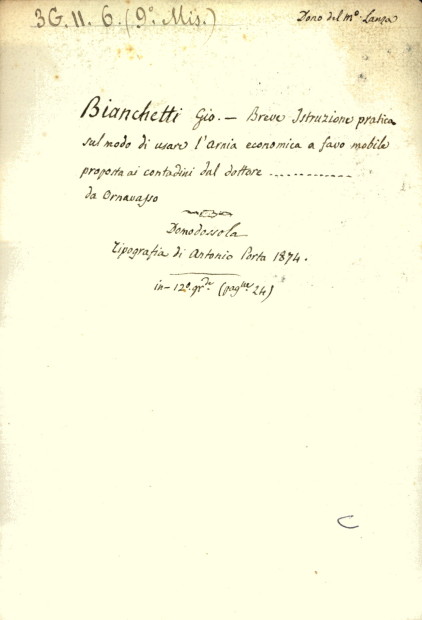 3G. 11. 6. (9.° Mis.)
Dono del M.° Lanza
Bianchetti Gio. — Breve Istruzione pratica
sul modo di usare l'Arnia economica a favo mobile
proposta ai contadini dal dottore ..............
da Ornavasso
Domodossola
Tipografia di Antonio Porta 1874.
in-12.° gr.de (pag.ne 24)
C